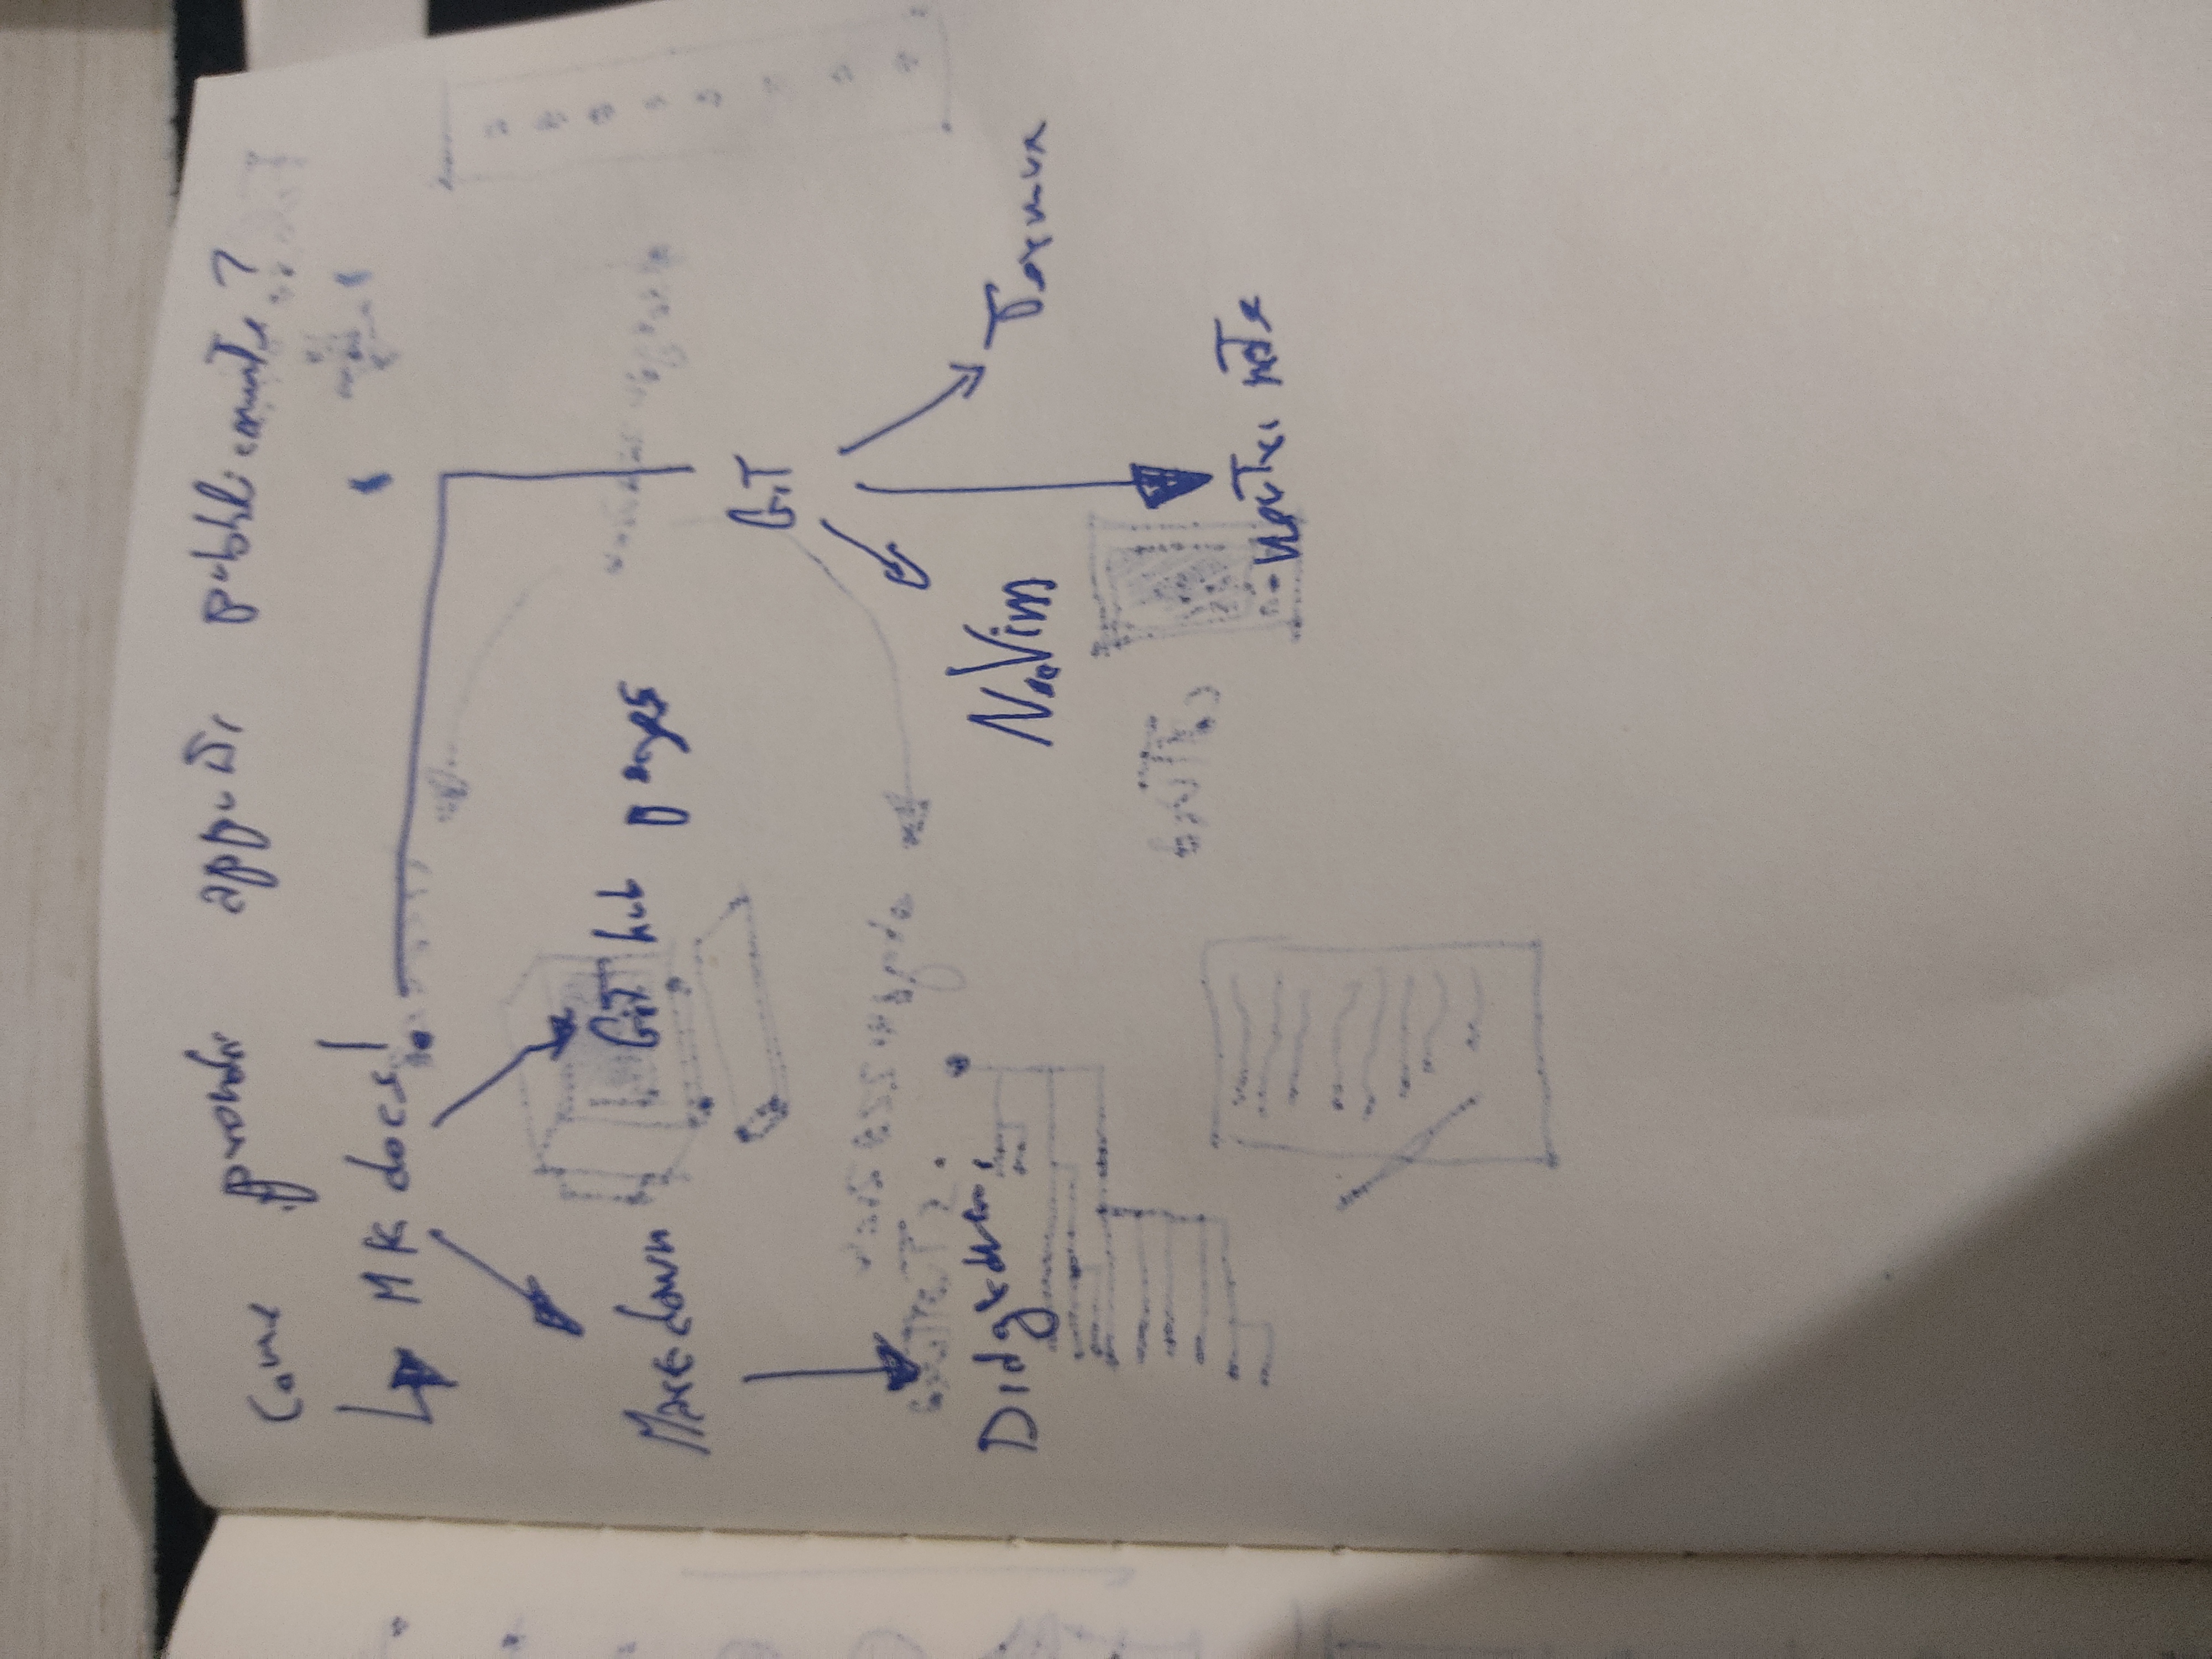 Come prendi appunti pubblicamente?
MK docs!
Markdown
GiT hub pages
GiT
NeoVim
Termux
neutri note